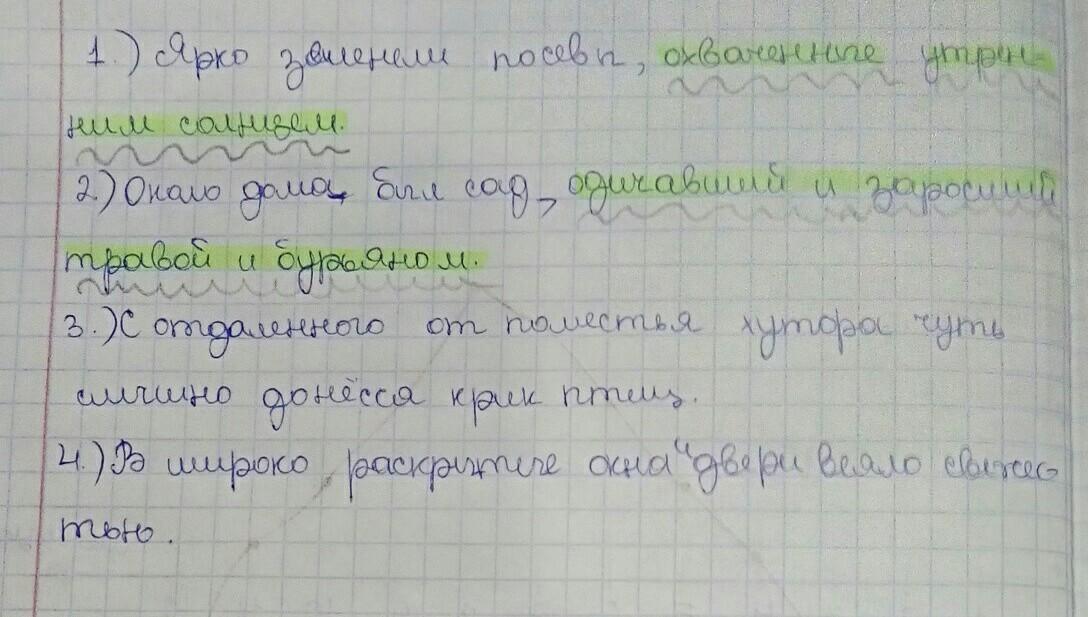 1.) Ярко зеленели посевы, охваченные утрен-
ним солнцем.
2.) Около дома был сад, одичавший и заросший
травой и бурьяном.
3.) С отдаленного от поместья хутора чуть
слышно донёсся крик птиц.
4.) В широко раскрытые окна и двери веяло свежес
тью.